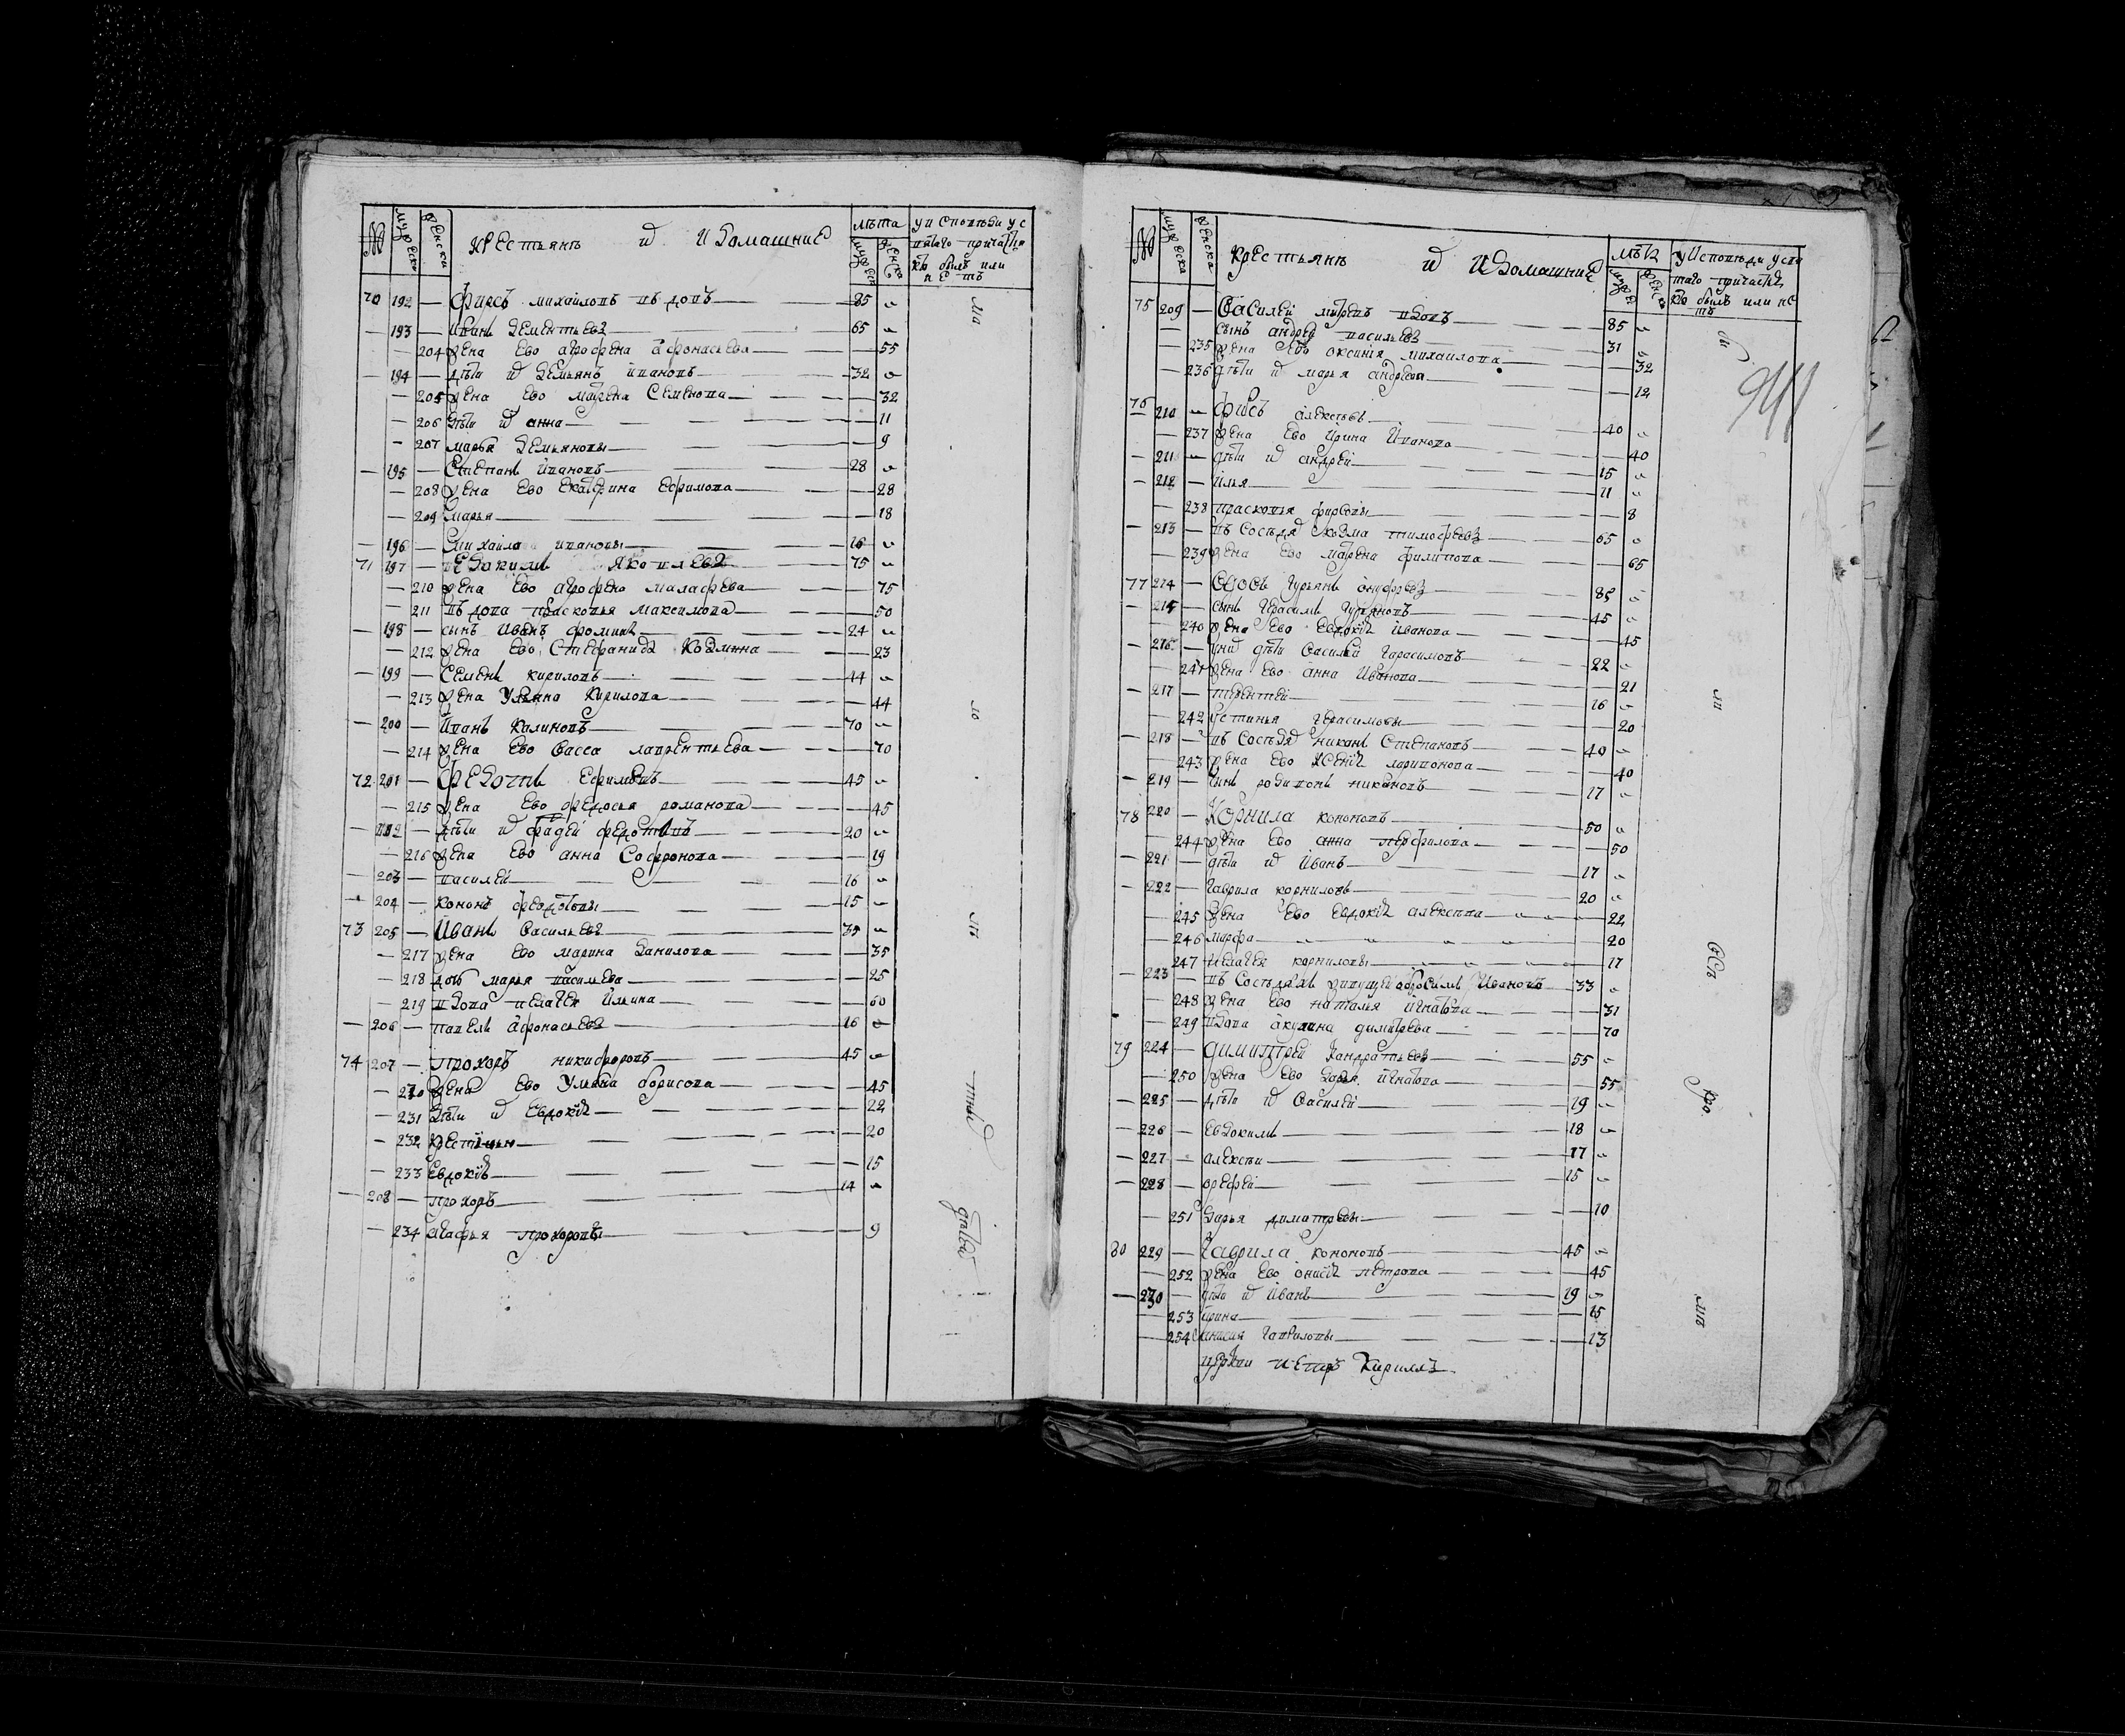 № мужеска женска крестьянъ и ихъ домашние лѣта мужеск женска у исповѣди у с
вятаго причастия
кто былъ или
нетъ
70 192 — Фирсъ михаиловъ вдовъ — 85
— 193 — Иванъ дементьевъ — 65
— 204 жена ево агрофена афонасьева — 55
— 194 — дѣти их демьянъ ивановъ — 32
— 205 жена ево матрена Семенова — 32
— 206 дѣти их анна — 11
— 207 марья демьяновы — 9
— 195 — Степанъ ивановъ — 28
— 208 жена ево екатерина ефимова — 28
— 209 марья — 18
— 196 — михаила ивановы — 16
71 197 — Евдокимъ яковлевъ — 75
— 210 жена ево агрофена малафеева — 75
— 211 вдова прасковья максимова — 50
— 198 — сынъ иванъ фоминъ — 24
— 212 жена ево Стефанида козмина — 23
— 199 — Семенъ кириловъ — 44
— 213 жена Ульяна кирилова — 44
— 200 — иванъ калиновъ — 70
— 214 жена ево васса лаврентьева — 70
72 201 — Федотъ ефимовъ — 45
— 215 жена ево федосья романова — 45
— 202 — дѣти их фадей федотовъ — 20
— 216 жена ево анна Софронова — 19
— 203 — василей — 16
— 204 — кононъ федотовы — 15
73 205 — Иванъ васильевъ — 35
— 217 жена ево марина данилова — 35
— 218 дочь марья васильева — 25
— 219 вдова пелагея ильина — 60
— 206 — павелъ афонасьевъ — 16
74 207 — Прохоръ никифоровъ — 45
— 230 жена ево Ульяна борисова — 45
— 231 дѣти их евдокия — 22
— 232 — 20
— 233 евдокия — 15
— 208 — прохоръ — 14
— 234 агафья прохоровы — 9
№ мужеска женска крестьянъ и ихъ домашние лѣта у исповѣди у свя
таго причастия
кто былъ или не
тъ
75 209 — Василей вдовъ — 85
сынъ андрей васильевъ — 31
— 235 жена ево оксиния михаилова — 32
— 236 дѣти их марья андреева — 12
76 210 — Фирсъ алексеевъ — 40
— 237 жена ево ирина иванова — 40
— 211 — дѣти их андрей — 15
— 212 — илья — 11
— 238 прасковья фирсовы — 8
— 213 — въ соседяхъ козма тимофеевъ — 65
— 239 жена ево матрена филипова — 65
77 214 — гурьянъ онуфреевъ — 85
— 215 — сынъ герасимъ гурьяновъ — 45
— 240 жена ево евдокия иванова — 45
— 216 — у них дѣти василей гарасимовъ — 22
— 241 жена ево анна иванова — 21
— 217 — терентей — 16
— 242 устинья герасимовы — 20
— 218 — въ соседях никонъ степановъ — 40
— 243 жена ево ксения ларионова — 40
— 219 — сынъ родионъ никоновъ — 17
78 220 — Корнила кононовъ — 50
— 244 жена ево анна перфилова — 50
— 221 — дѣти их иванъ — 17
— 222 — гаврила корниловъ — 20
— 245 жена ево евдокия алексеева — 22
— 246 марфа — 20
— 247 пелагея корниловы — 17
— 223 — въ соседяхъ живущей абросимъ ивановъ 33
— 248 жена ево наталья игнатова — 31
— 249 вдова акулина димитрева — 70
79 224 — Димитрей кондратьевъ — 55
— 250 жена ево дарья игнатова — 55
— 225 — дѣти их василей — 19
— 226 — евдокимъ — 18
— 227 — алексей — 17
— 228 — ерефей — 15
— 251 дарья димитревы — 10
80 229 — Гаврила кононовъ — 45
— 252 жена ево онисия петрова — 45
— 230 — дѣти их иванъ — 19
— 253 ирина — 15
— 254 анисия гавриловы — 13
петръ Кириллъ